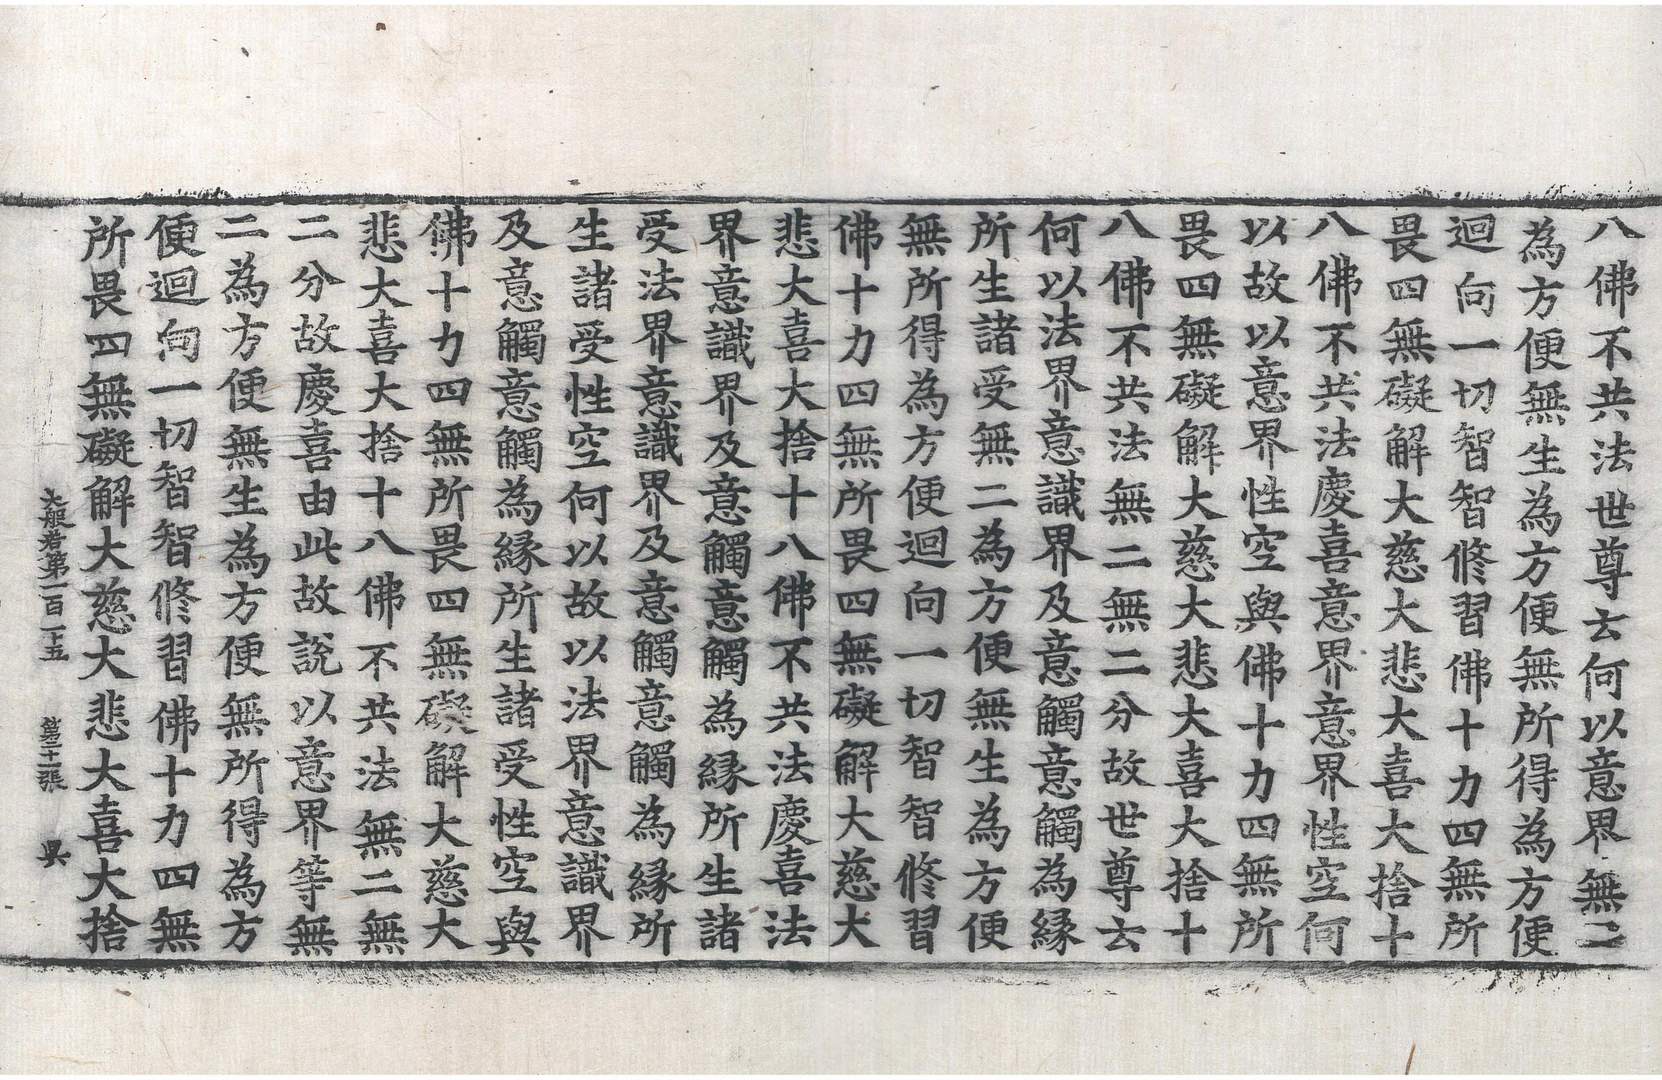 八佛不共法世尊云何以意界無二
為方便無生為方便無所得為方便
迴向一切智智修習佛十力四無所
畏四無礙解大慈大悲大喜大捨十
八佛不共法慶喜意界意界性空何
以故以意界性空與佛十力四無所
畏四無礙解大慈大悲大喜大捨十
八佛不共法無二無二分故世尊云
何以法界意識界及意觸意觸為緣
所生諸受無二為方便無生為方便
無所得為方便迴向一切智智修習
佛十力四無所畏四無礙解大慈大
悲大喜大捨十八佛不共法慶喜法
界意識界及意觸意觸為緣所生諸
受法界意識界及意觸意觸為緣所
生諸受性空何以故以法界意識界
及意觸意觸為緣所生諸受性空與
佛十力四無所畏四無礙解大慈大
悲大喜大捨十八佛不共法無二無
二分故慶喜由此故說以意界等無
二為方便無生為方便無所得為方
便迴向一切智智修習佛十力四無
所畏四無礙解大慈大悲大喜大捨
大般若第一百一十五 第二十一張 昃